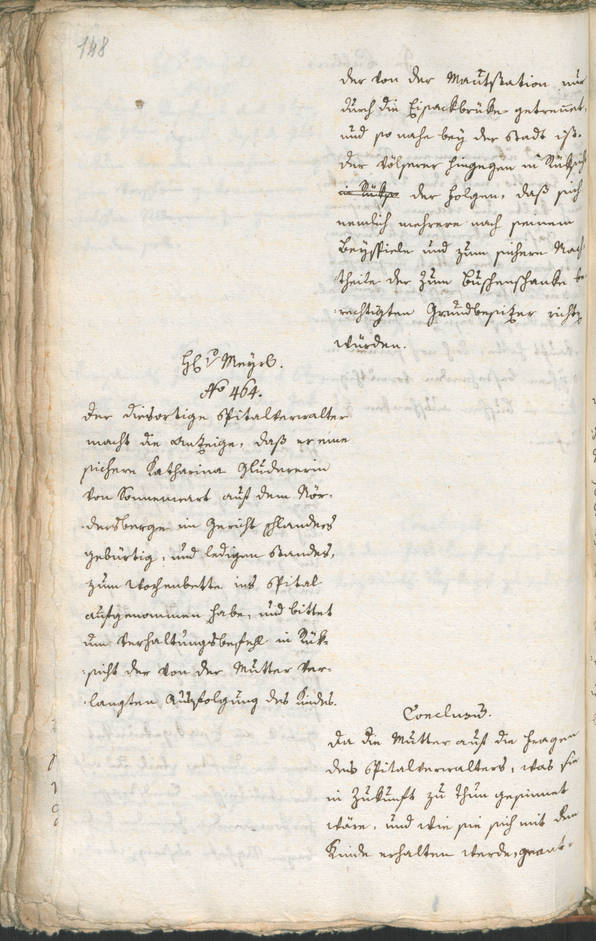 148
der von der Mautstation nur
durch die Eisackbrüke getrennet,
und so nahe bey der Stadt ist.
Der Völserer hingegen in Rüksicht
in Rüks der Folgen, daß sich
nemlich mehrere nach seinem
Beyspiele und zum sichern Nach
theile der zum Buschenschanke be
rechtigten Grundbesitzer richten
würden.
H. v. Meyrl.
No 464.
Der diesortige Spitalverwalter
macht die Anzeige, daß er eine
sichere Katharina Gluderer
von auf dem Nör-
dersberge im Gericht Schlanders
gebürtig, und ledigen Standes,
zum Wochenbette ins Spital
aufgenommen habe, und bittet
um Verhaltungsbefehl in Rük-
sicht der von der Mutter ver-
langten Ausfolgung des Kindes.
Conclusum.
Da die Mutter auf die Fragen
des Spitalverwalters, was sie
in Zukunft zu thun gesinnet
wäre, und wie sie sich mit dem
Kinde erhalten werde, geant-